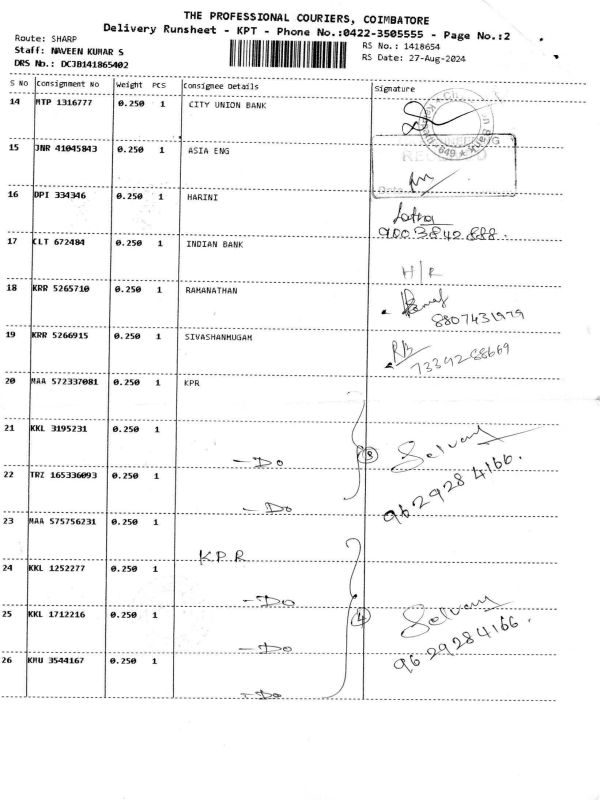 THE PROFESSIONAL COURIERS, COIMBATORE
Delivery Runsheet - KPT - Phone No.:0422-3505555 - Page No.:2
Route: SHARP
RS No.: 1418654
Staff: NAVEEN KUMAR S
RS Date: 27-Aug-2024
DRS No.: DCJB141865402
S No Consignment No Weight PCS Consignee Details Signature
14 MTP 1316777 0.250 1 CITY UNION BANK
15 JNR 41045843 0.250 1 ASIA ENG
16 DPI 334346 0.250 1 HARINI Latha
9003842888.
17 CLT 672484 0.250 1 INDIAN BANK
H/R
18 KRR 5265710 0.250 1 RAMANATHAN
8807431979
19 KRR 5266915 0.250 1 SIVASHANMUGAM RB
7339288669
20 MAA 572337081 0.250 1 KPR
21 KKL 3195231 0.250 1
-Do (3) Selvam
22 TRZ 165336093 0.250 1 9629284166.
-Do
23 MAA 575756231 0.250 1
KPR
24 KKL 1252277 0.250 1
-Do
25 KKL 1712216 0.250 1 (4) Selvam
-Do 9629284166.
26 KMU 3544167 0.250 1
-Do